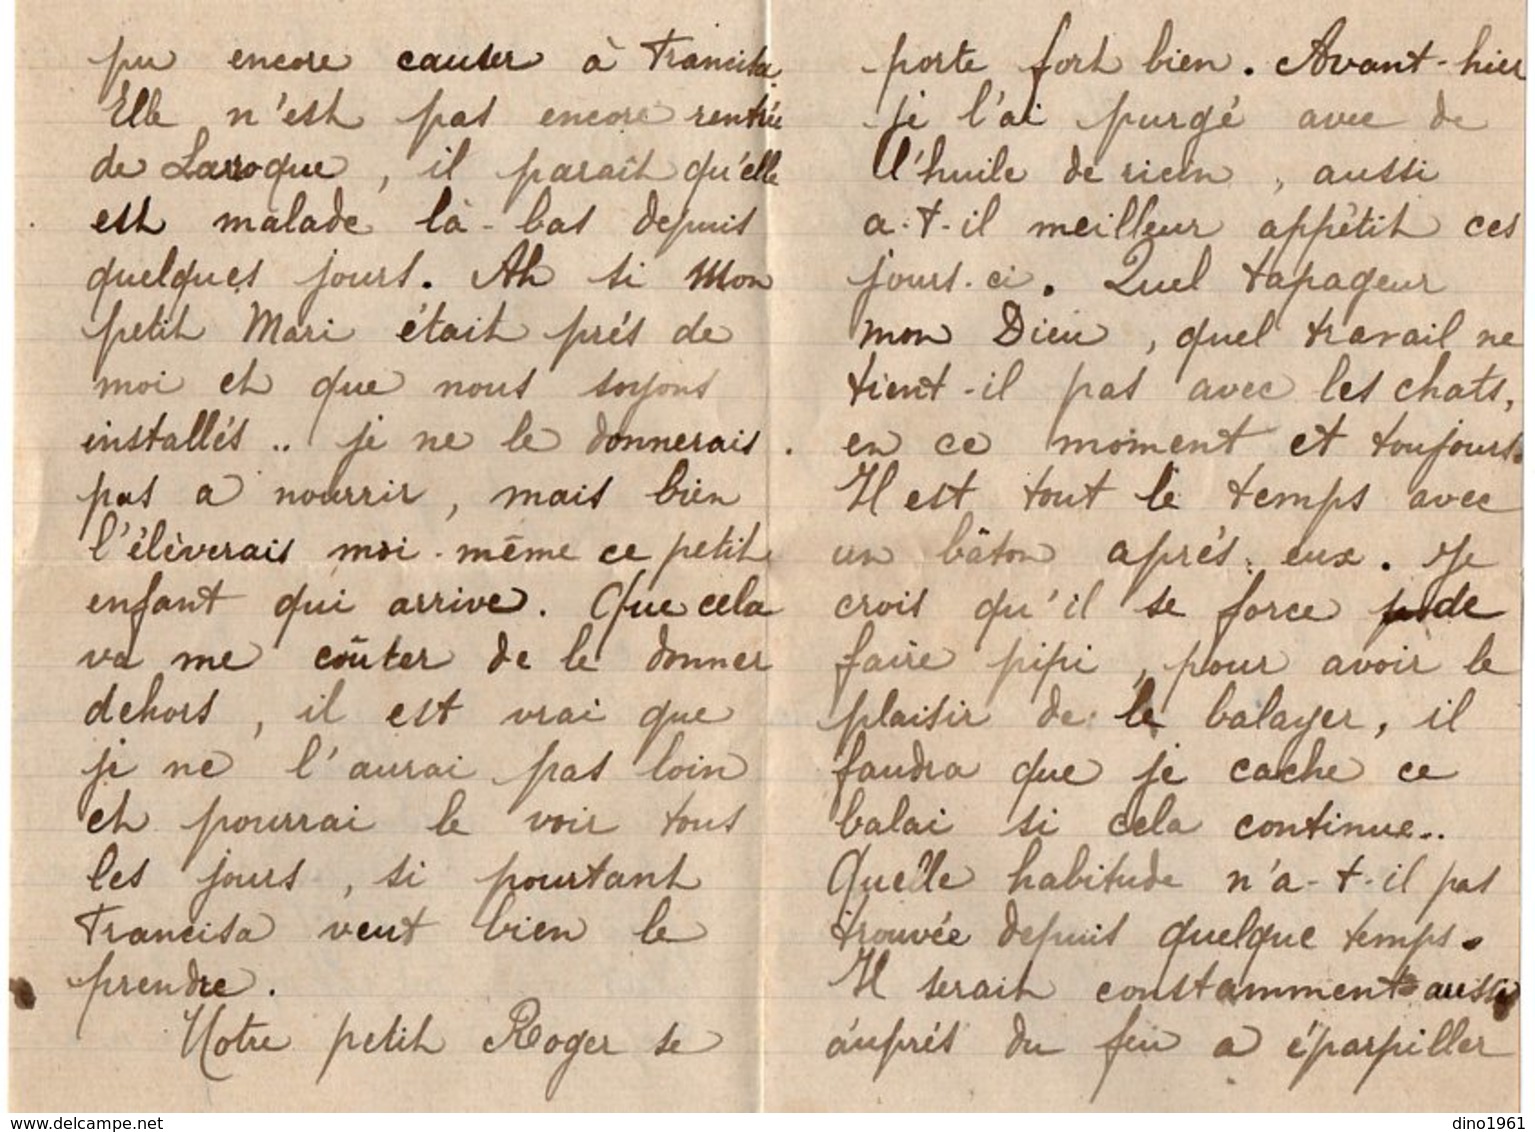 pu encore causer à Francisa.
Elle n'est pas encore rentrée
de Larroque, il paraît qu'elle
est malade là-bas depuis
quelques jours. Ah si Mon
petit Mari était prés de
moi et que nous soyons
installés.. je ne le donnerais
pas a nourrir, mais bien
l'élèverais moi-même ce petit
enfant qui arrive. Que cela
va me coûter de le donner
dehors, il est vrai que
je ne l'aurai pas loin
et pourrai le voir tous
les jours, si pourtant
Francisa veut bien le
prendre.
Notre petit Roger se
porte fort bien. Avant-hier
je l'ai purgé avec de
l'huile de ricin, aussi
a-t-il meilleur appétit ces
jours-ci. Quel tapageur
mon Dieu, quel travail ne
tient-il pas avec les chats,
en ce moment et toujours.
Il est tout le temps avec
un bâton aprés eux. Je
crois qu'il se force de
faire pipi, pour avoir le
plaisir de le balayer, il
faudra que je cache ce
balai si cela continue..
Quelle habitude n'a-t-il pas
trouvée depuis quelque temps.
Il serait constamment aussi
auprés du feu a éparpiller
delcampe.net
dino1961